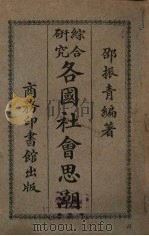 邵振青編著
綜合研究
各國社會思潮
商務印書館出版